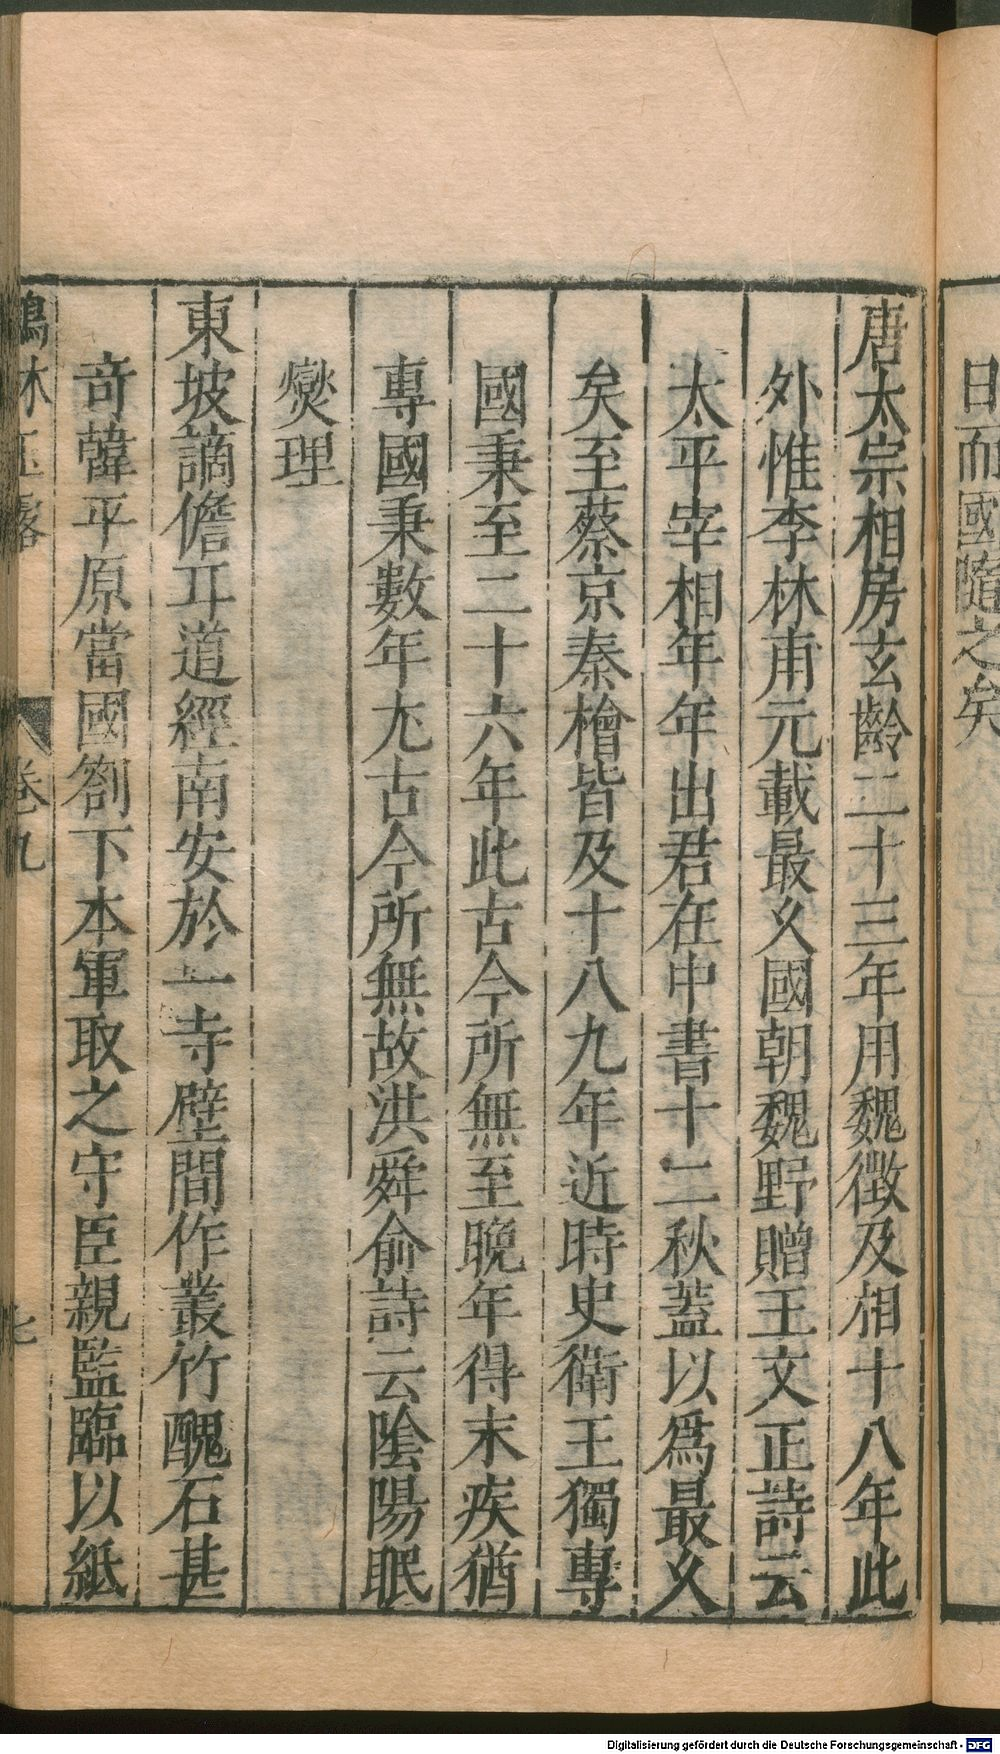 日而國隨之矣
唐太宗相房玄齡二十三年用魏徵及相十八年此
外惟李林甫元載最久國朝魏野贈王文正詩云
太平宰相年年出君在中書十二秋蓋以爲最久
矣至蔡京秦檜皆及十八九年近時史衛王獨專
國秉至二十六年此古今所無至晚年得末疾猶
專國秉數年尤古今所無故洪舜俞詩云陰陽眠
燮理
東坡謫儋耳道經南安於一寺壁間作叢竹醜石甚
奇韓平原當國劄下本軍取之守臣親監臨以紙
鶴林玉露 卷九 七
Digitalisierung gefördert durch die Deutsche Forschungsgemeinschaft - DFG